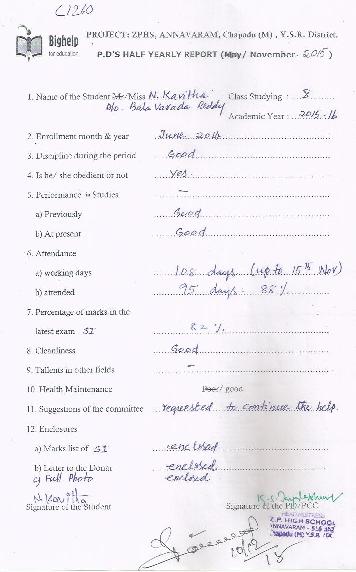 C1260
Bighelp
for education
PROJECT: ZPHS, ANNAVARAM, Chapadu (M), Y.S.R. District.
P.D'S HALF YEARLY REPORT (May/ November- 2015)
1. Name of the Student Mr/Miss N. Kavitha Class Studying : 8
D/o. Bala Varada Reddy
Academic Year : 2015-16
2. Enrollment month & year June 2014
3. Discipline during the period Good
4. Is he/ she obedient or not Yes
5. Performance in Studies –
a) Previously Good
b) At present Good
6. Attendance
a) working days 108 days (up to 15th Nov)
b) attended 95 days
7. Percentage of marks in the
latest exam S1 82 %
8. Cleanliness Good
9. Tallents in other fields –
10. Health Maintenance Poor/ good
11. Suggestions of the committee requested to continue the help.
12. Enclosures
a) Marks list of S1 enclosed
b) Letter to the Donar enclosed
c) Full Photo enclosed
N. Kavitha
Signature of the Student Signature of the PD/PCC
Z.P. HIGH SCHOOL
ANNAVARAM - 516 352
Chapadu (M) Y.S.R. Dt.
10/12
15